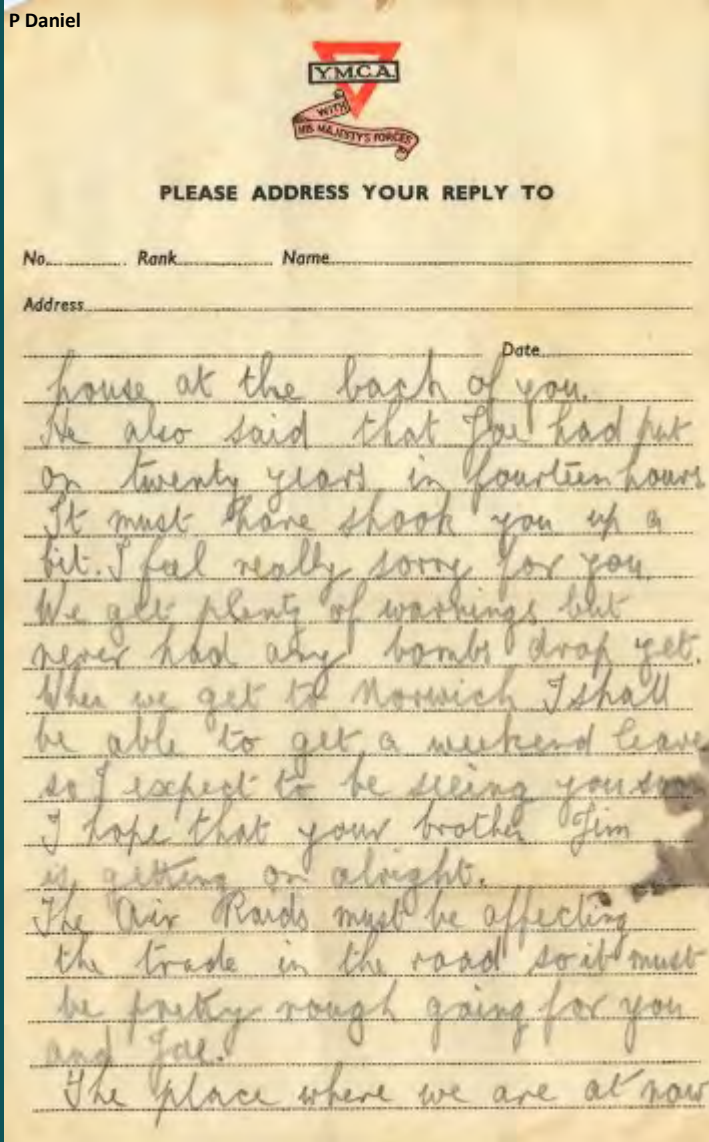 P Daniel
Y.M.C.A.
WITH
HIS MAJESTY'S FORCES
PLEASE ADDRESS YOUR REPLY TO
No. Rank Name
Address
Date
house at the back of you.
He also said that Joe had put
on twenty years in fourteen hours
It must have shook you up a
bit. I feel really sorry for you.
We get plenty of warnings but
never had any bombs drop yet.
When we get to Norwich I shall
be able to get a weekend leave
so I expect to be seeing you soon
I hope that your brother Jim
is getting on alright.
The Air Raids must be affecting
the trade in the road so it must
be pretty rough going for you
and Joe.
The place where we are at now